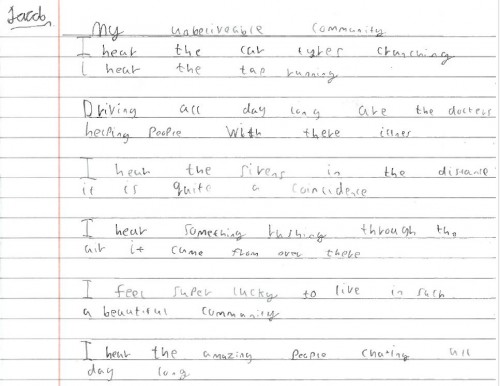 Jacob
My unbeliveable community
I hear the car tyres crunching
I hear the tap running
Driving all day long are the docters
helping people with there illnes
I hear the sirens in the distance
it is quite a coincidence
I hear something rushing through the
air it came from over there
I feel super lucky to live in such
a beautiful community
I hear the amazing people chating all
day long